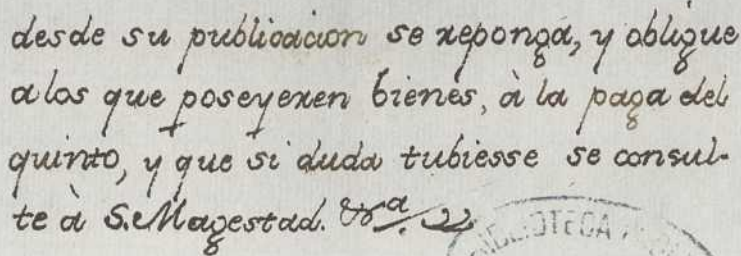 desde su publicacion se reponga, y obligue
a los que poseyeren bienes, à la paga del
quinto, y que si duda tubiesse se consul-
te à S. Magestad. &ra.
BIBLIOTECA